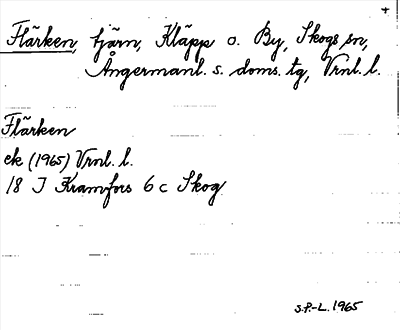 Flärken, tjärn, Kläpp o. By, Skogs sn,
Ångermanl. s. doms. tg, Vrnl. l.
Flärken
ek (1965) Vrnl. l.
18 J Kramfors 6 c Skog
S.P.-L. 1965